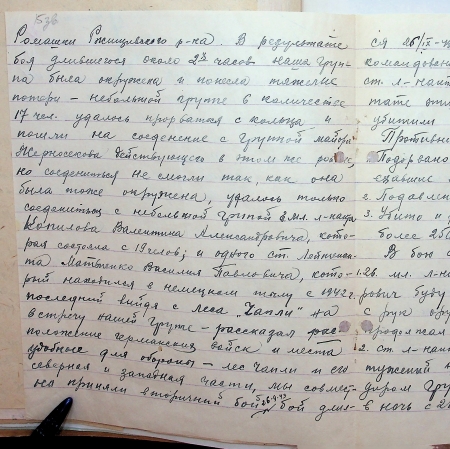 536
Ромашки Ржищевского р-на. В результате
боя длившегося около 2х часов наша груп-
па была окружена и понесла тяжелые
потери – небольшой группе в количестве
17 чел. удалось прорватся с кольца и
пошли на соеденение с группой майора
действующего в этом же районе,
но соедениться не смогли так, как она
была тоже окружена, удалось только
соеденитьсь с небольшой группой мл. л-нанта
Копилова Валентина Александровича, кото-
рая состояла с 19 человек и одного ст. Лейтенан-
та Матвиенко Василия Павловича, кото-
рый находился в немецком тылу с 1942 г.
последний выйдя с леса "Чапли" на
встречу нашей группе – рассказал рас-
положение германских войск и места
удобные для обороны – лес Чапли и его
северная и западная части, мы совмест-
но приняли вторичный бой 26.9.43 бой длил-
ся 26/IX-
командован
ст. л-нант
тате эти
убитыми
Противни
Подорвано
2. Подавлен
3. Убито и
более 250
В бою с
1. 26. мл. л-на
рович буду
с рук ору
продолжал
2. ст. л-нан
тужений
диром гру
в ночь с 2